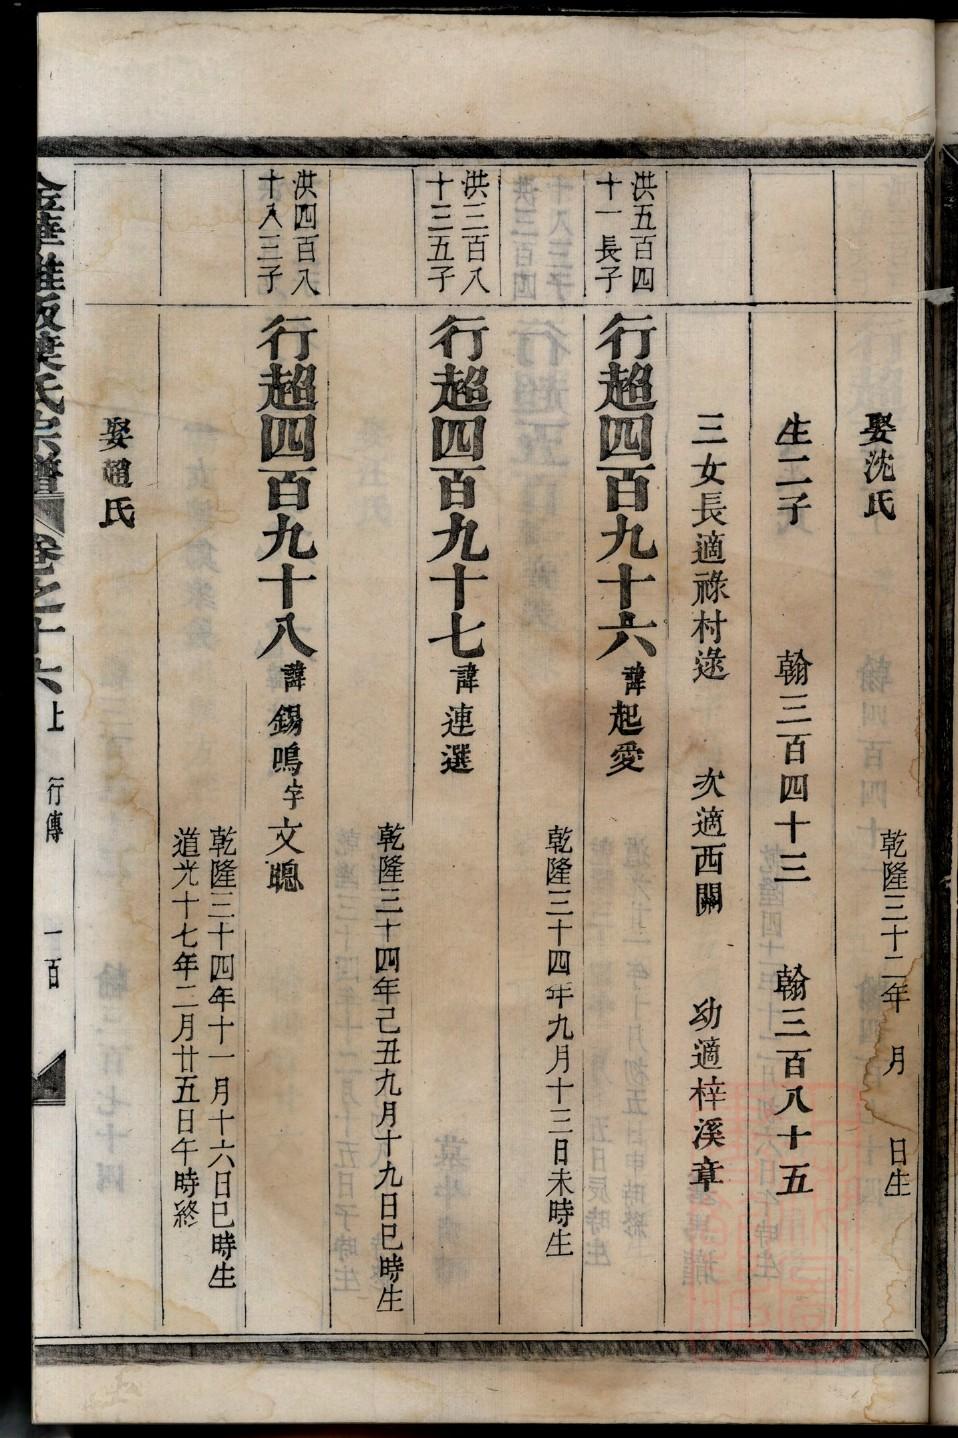 娶沈氏
乾隆三十二年 月 日生
生二子 翰三百四十三 翰三百八十五
三女長適祿村逯 次適西關 幼適梓溪章
洪五百四
十一長子
行超四百九十六諱起愛
乾隆三十四年九月十三日未時生
洪三百八
十三五子
行超四百九十七諱連選
乾隆三十四年己丑九月十九日巳時生
洪四百八
十八三子
行超四百九十八諱錫鳴字文聰
乾隆三十四年十一月十六日巳時生
道光十七年二月廿五日午時終
娶趙氏
金華雅畈葉氏宗譜 卷之十六上 行傳 一百